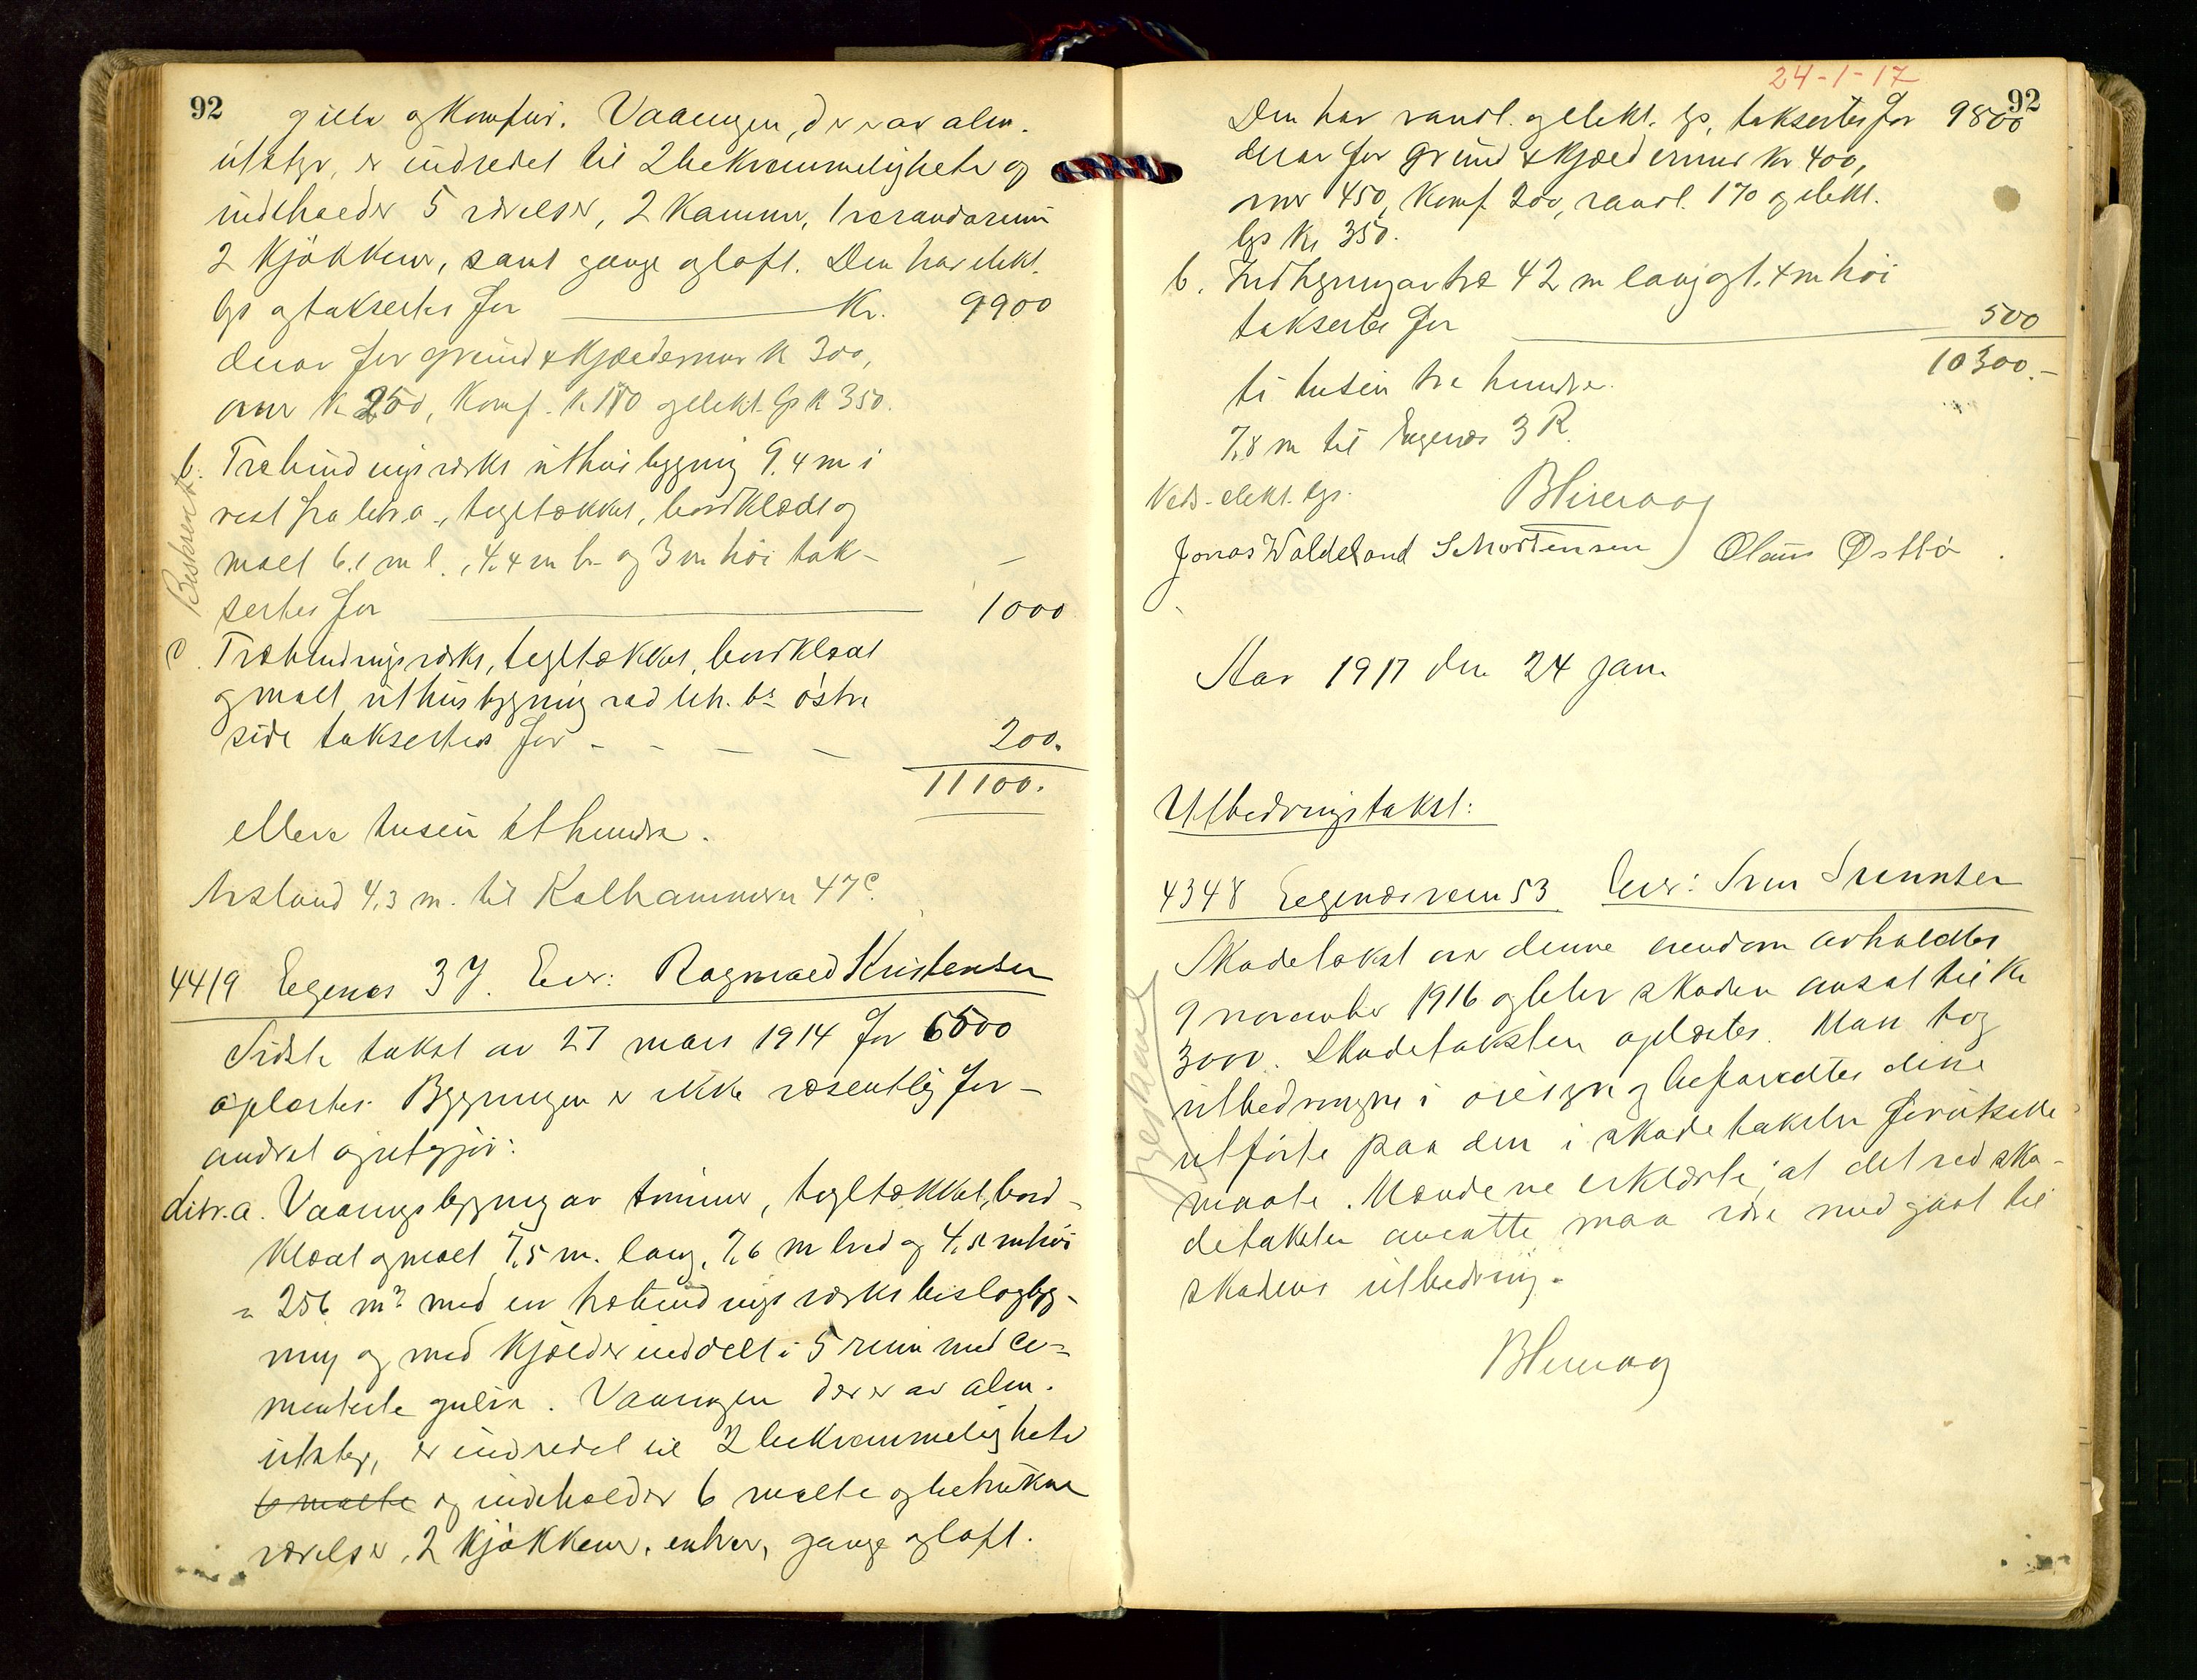 92
gulv og komfur. Vaaningen, der er av alm.
utstyr, er indredet til 2 bekvemmeligheter og
indeholder 5 værelser, 2 kammer, 1 verandarum
2 kjøkkener, samt gange og loft. Den har elekt.
lys og takseres for Kr. 9900
derav for grund & kjældermur K 300,
mur K 250, komf. K 170 og elekt. lys K 350.
Beskrevet
b. Træbindingsverks uthusbygning 9.4 m i
vest fra litr. a., tegltækket, bordklædt og
malt 6.1 m l., 4.4 m br. og 3 m høi tak-
sertes for 1000
c. Træbindingsverks, tegltækket, bordklædt
og malt uthusbygning ved litr. bs østre
side taksertes for - - - - 200.
11100.
elleve tusen et hundre.
Avstand 4,3 m. til Kalhammeren 47c.
4419 Egenes 3J. Eier: Ragnvald Kristensen
Sidste takst av 27 mars 1914 for 6500
oplæstes. Bygningen er ikke væsentlig for-
andret og utgjør:
Litr. a. Vaaningsbygning av tømmer, tegltækket, bord-
klædt og malt 7,5 m. lang, 7,6 m bred og 4,5 m høi
= 256 m³ med en træbindingsverks bislagbyg-
ning og med kjælder inddelt i 5 rum med ce-
menterte gulve. Vaaningen der er av alm.
utstyr, er indredet til 2 bekvemmeligheter
6 malte og indeholder 6 malte og betrukne
værelser, 2 kjøkkener, entreer, gange og loft.
24-1-17
92
Den har vandl. og elekt. lys, taksertes for 9800
derav for grund & kjældermur Kr 400,
mur 450, komf. 200, vandl. 170 og elekt.
lys Kr 350.
b. Indhegning av træ 42 m lang og 1.4 m høi
taksertes for 500
10300.-
ti tusen tre hundre.
7,8 m til Egenes 3 R.
Veds. elekt. lys.
Jonas Waldeland S Mortensen Olaus Østbø
Aar 1917 den 24 jan.
Utbedringstakst:
4348 Eegenesveien 53 Eier: Sven Svennsen
Beskrevet
Skadetakst av denne eiendom avholdtes
9 november 1916 og blev skaden ansat til Kr
3000. Skadetaksten oplæstes. Man tog
utbedringene i øiesyn og befandtes disse
utførte paa den i skadetaksten forutsatte
maate. Mændene erklærte, at det ved ska-
detaksten ansatte maa være medgaat til
skadens utbedring.